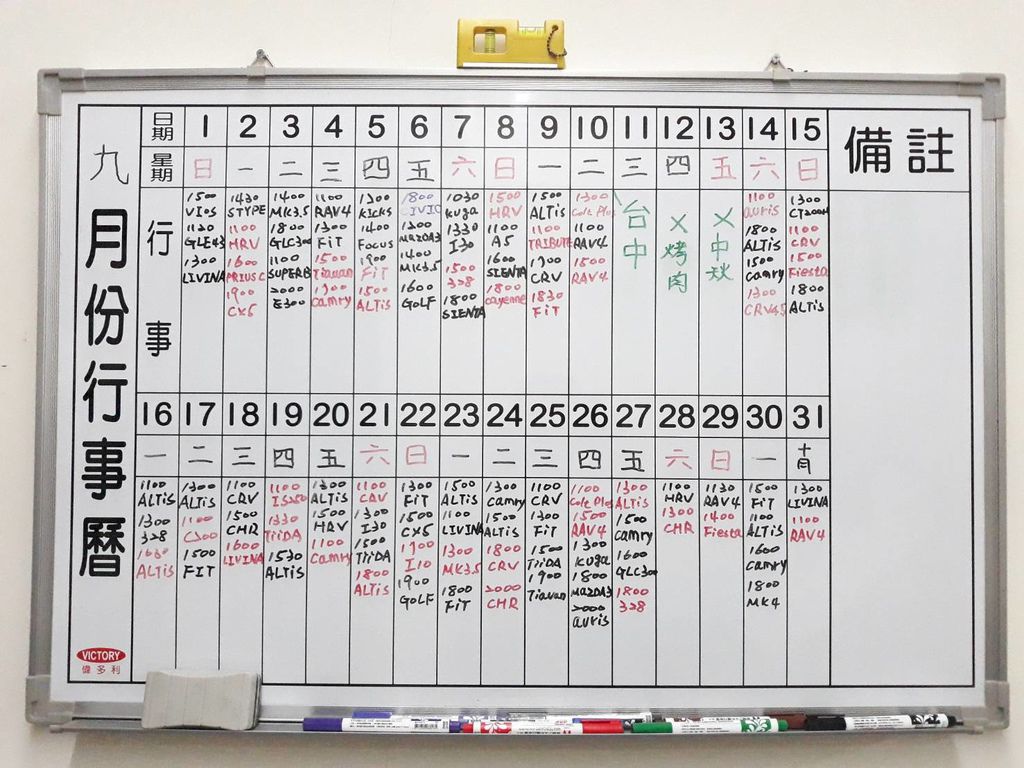 九月份行事曆
日期 1 2 3 4 5 6 7 8 9 10 11 12 13 14 15 備註
星期 日 一 二 三 四 五 六 日 一 二 三 四 五 六 日
行事
1500 VIOS 1120 GLE43 1300 LIVINA
1430 STYPE 1100 HRV 1600 PRIUS C 1900 CX5
1400 MK3.5 1800 GLC300 1100 SUPERB 2000 E300
1100 RAV4 1300 FiT 1500 Tiguan 1900 Camry
1300 KICKS 1400 Focus 1900 FiT 1500 ALTiS
1800 CIVIC 1200 MAZDA3 1400 MK3.5 1600 GOLF
1030 Kuga 1330 I30 1500 328 1800 SIENTA
1500 HRV 1100 A5 1600 SIENTA 1800 Cayenne
1500 ALTiS 1100 TRIBUTE 1900 CRV 1830 FiT
1300 Colt Plus 1100 RAV4 1500 RAV4
台中
X 烤肉
X 中秋
1100 auris 1800 ALTiS 1500 Camry 1300 CRV4.5
1300 CT200H 1100 CRV 1500 Fiesta 1800 ALTiS
16 17 18 19 20 21 22 23 24 25 26 27 28 29 30 31
一 二 三 四 五 六 日 一 二 三 四 五 六 日 一 十月
1100 ALTiS 1300 328 1630 ALTiS
1300 ALTiS 1100 C300 1500 FIT
1100 CRV 1500 CHR 1600 LIVINA
1100 IS250 1330 TiiDA 1530 ALTiS
1300 ALTiS 1500 HRV 1100 Camry
1100 CRV 1300 I30 1500 TiiDA 1800 ALTiS
1300 FiT 1500 CX5 1700 I10 1900 GOLF
1500 ALTiS 1100 LIVINA 1300 MK3.5 1800 FiT
1300 Camry 1500 ALTiS 1800 CRV 2000 CHR
1100 CRV 1300 FiT 1500 TiiDA 1900 Tiguan
1100 Colt Plus 1500 RAV4 1300 Kuga 1800 MAZDA3 2000 auris
1300 ALTiS 1500 Camry 1600 GLC300 1800 328
1100 HRV 1300 CHR
1130 RAV4 1400 Fiesta
1500 FiT 1100 ALTiS 1600 Camry 1800 MK4
1300 LIVINA 1100 RAV4
VICTORY
偉多利